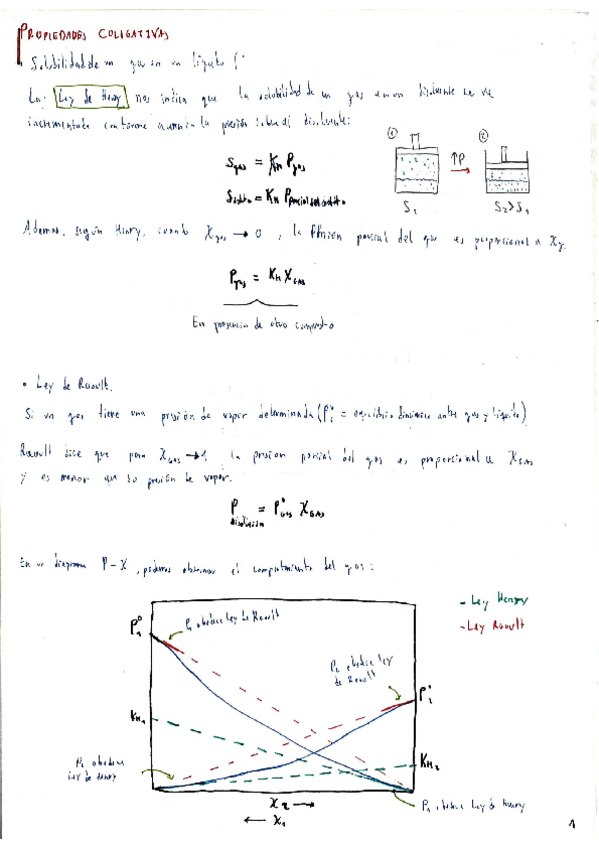 PROPIEDADES COLIGATIVAS
· Solubilidad de un gas en un líquido
La Ley de Henry nos indica que la solubilidad de un gas en un disolvente se ve
incrementada conforme aumenta la presión sobre el disolvente:
① ②
↑P
S gas = K_H P gas
S soluto = K_H P parcial del soluto
S₁ S₂>S₁
Además, según Henry, cuando X gas → 0, la Presión parcial del gas es proporcional a X
P gas = K_H X GAS
En presencia de otro compuesto
• Ley de Raoult.
Si un gas tiene una presión de vapor determinada (P° = equilibrio dinámico entre gas y líquido)
Raoult dice que para X GAS → 1 la presión parcial del gas es proporcional a X GAS
y es menor que su presión de vapor.
P disolución = P° GAS X GAS
En un diagrama P-X, podemos observar el comportamiento del gas:
- Ley Henry
- Ley Raoult
P₁° P₁ obedece Ley de Raoult
P₂ obedece Ley
de Raoult
P₂°
K_H₁
K_H₂
P₂ obedece
Ley de Henry
P₁ obedece Ley de Henry
X₂ →
← X₁
1